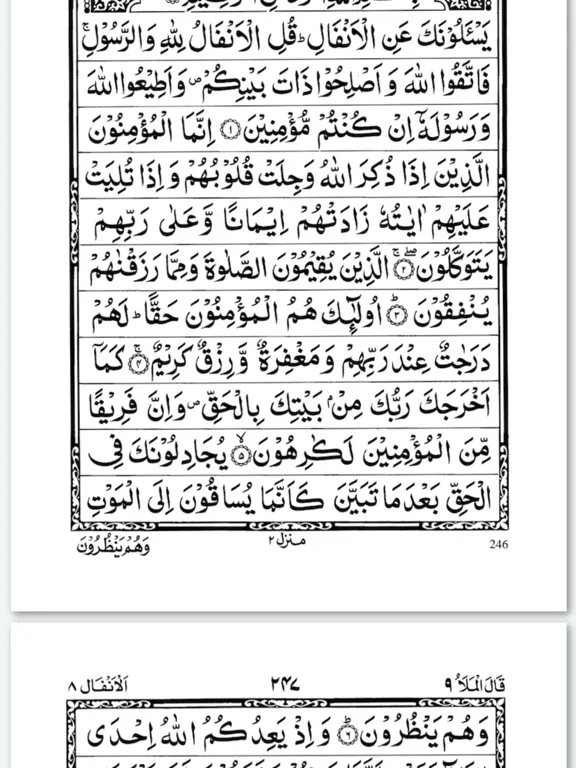 يَسْـَٔلُوْنَكَ عَنِ الْاَنْفَالِ ؕ قُلِ الْاَنْفَالُ لِلّٰهِ وَالرَّسُوْلِ ۚ
فَاتَّقُوا اللّٰهَ وَ اَصْلِحُوْا ذَاتَ بَيْنِكُمْ ۪ وَ اَطِيْعُوا اللّٰهَ
وَ رَسُوْلَهٗۤ اِنْ كُنْتُمْ مُّؤْمِنِيْنَ ۝۱ اِنَّمَا الْمُؤْمِنُوْنَ
الَّذِيْنَ اِذَا ذُكِرَ اللّٰهُ وَجِلَتْ قُلُوْبُهُمْ وَ اِذَا تُلِيَتْ
عَلَيْهِمْ اٰيٰتُهٗ زَادَتْهُمْ اِيْمَانًا وَّ عَلٰى رَبِّهِمْ
يَتَوَكَّلُوْنَ ۝۲ الَّذِيْنَ يُقِيْمُوْنَ الصَّلٰوةَ وَ مِمَّا رَزَقْنٰهُمْ
يُنْفِقُوْنَ ۝۳ اُولٰٓئِكَ هُمُ الْمُؤْمِنُوْنَ حَقًّا ؕ لَهُمْ
دَرَجٰتٌ عِنْدَ رَبِّهِمْ وَ مَغْفِرَةٌ وَّ رِزْقٌ كَرِيْمٌ ۝۴ كَمَاۤ
اَخْرَجَكَ رَبُّكَ مِنْۢ بَيْتِكَ بِالْحَقِّ ۪ وَ اِنَّ فَرِيْقًا
مِّنَ الْمُؤْمِنِيْنَ لَكٰرِهُوْنَ ۝۵ يُجَادِلُوْنَكَ فِي
الْحَقِّ بَعْدَ مَا تَبَيَّنَ كَاَنَّمَا يُسَاقُوْنَ اِلَى الْمَوْتِ
وَ هُمْ يَنْظُرُوْنَ منزل ۲ 246
قَالَ الْمَلَاُ ۹ ۲۴۷ اَلْاَنْفَال ۸
وَ هُمْ يَنْظُرُوْنَ ۝۶ وَ اِذْ يَعِدُكُمُ اللّٰهُ اِحْدَى